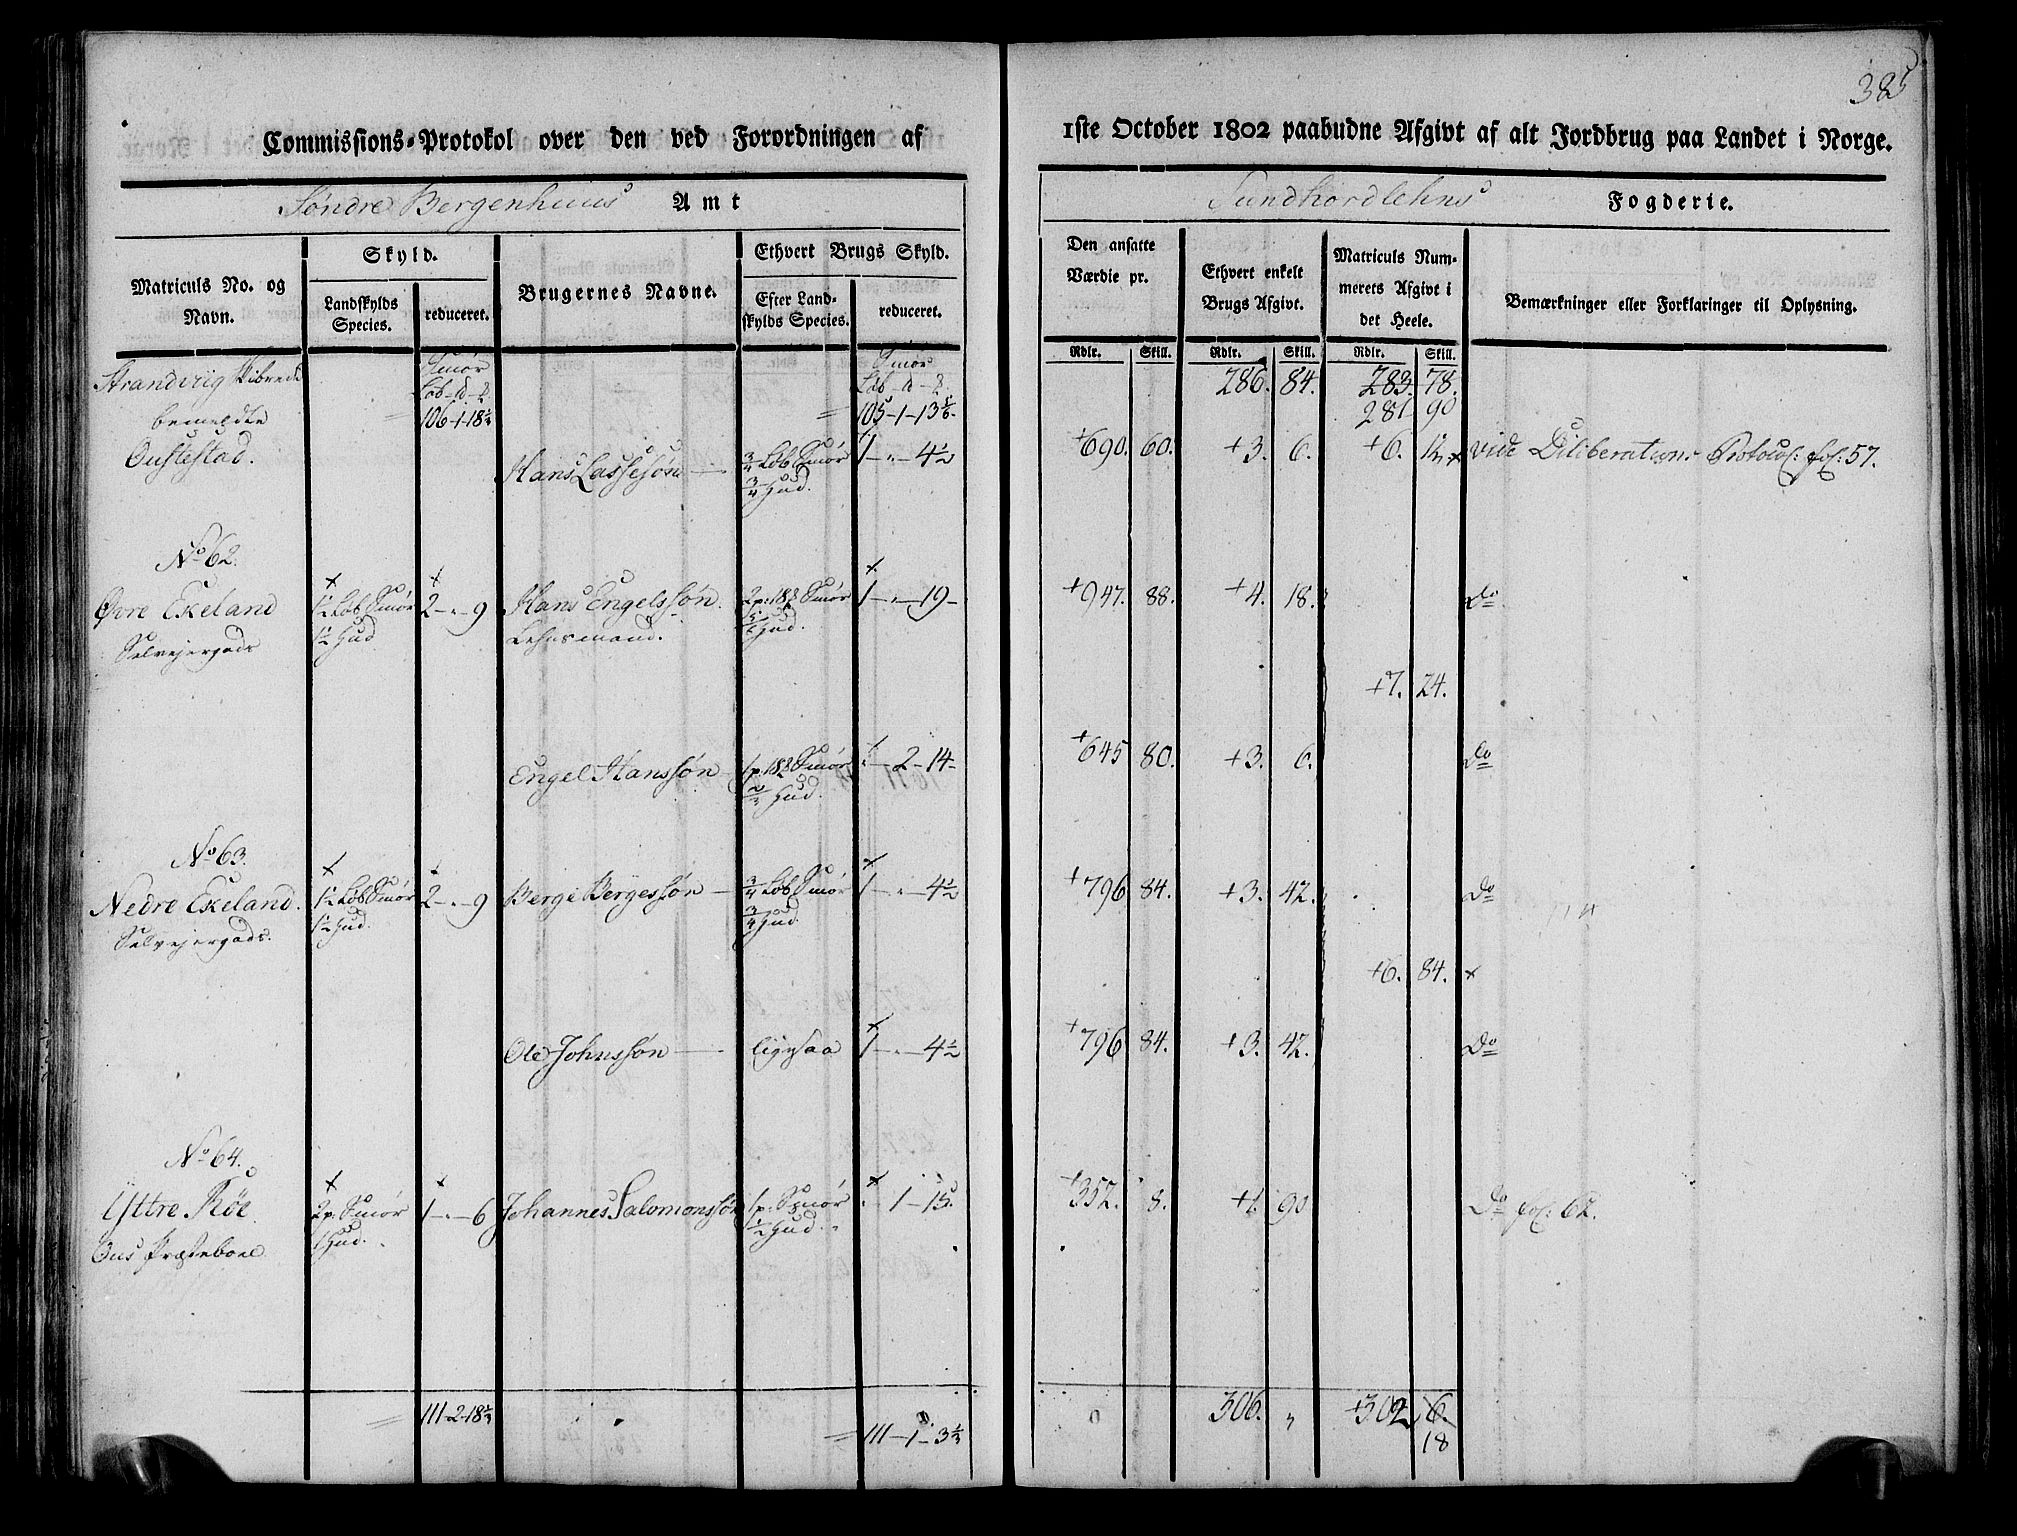 385
Commissions-Protokol over den ved Forordningen af 1ste October 1802 paabudne Afgivt af alt Jordbrug paa Landet i Norge.
Søndre Bergenhuus Amt
Sundhordlehns Fogderie.
Matriculs No. og Navn.
Skyld.
Landskylds Species.
reduceret.
Brugernes Navne.
Ethvert Brugs Skyld.
Efter Landskylds Species.
reduceret.
Den ansatte Værdie pr.
Rdlr. Skill.
Ethvert enkelt Brugs Afgivt.
Rdlr. Skill.
Matriculs Nummerets Afgivt i det Heele.
Rdlr. Skill.
Bemærkninger eller Forklaringer til Oplysning.
Strandvig Skibrede Smør Smør 286. 84. 283. 78.
bemeldte 106-1-18½ 105-1-13⅚ 281 90
Oustestad. Hans Lassesøn ¾ Løb Smør 1-"-4½ +690. 60. +3. 6. +6. 12 vide Deliberations Protocol fol: 57.
¾ Hud.
No 62.
Øvre Ekeland 1½ Løb Smør 2-"-9 Hans Engelssøn. Smør 1-"-19- +947. 88. +4. 18. Do
Selveiergods 1½ Hud Lehnsmand. Hud.
+7. 24.
Engel Hanssøn Smør "-2-14- +645 80. +3. 6. Do
⅔ Hud.
No 63.
Nedre Ekeland. 1½ Løb Smør 2-"-9 Berge Bergessøn ¾ Løb Smør 1-"-4½ +796 84. +3. 42. Do
Selveiergods. 1½ Hud. ¾ Hud.
+6. 84. x
Ole Johnssøn ligesaa 1-"-4½ +796 84. +3. 42. Do
No 64.
Yttre Røe 2p: Smør 1-"-6 Johannes Salomonssøn 1p: Smør "-1-15. +352. 8. +1. 90 Do fol: 62.
Ous Præstebord 1 Hud. ½ Hud.
111-2-18½ 111-1-3⅓ 306. " +302 6.
18